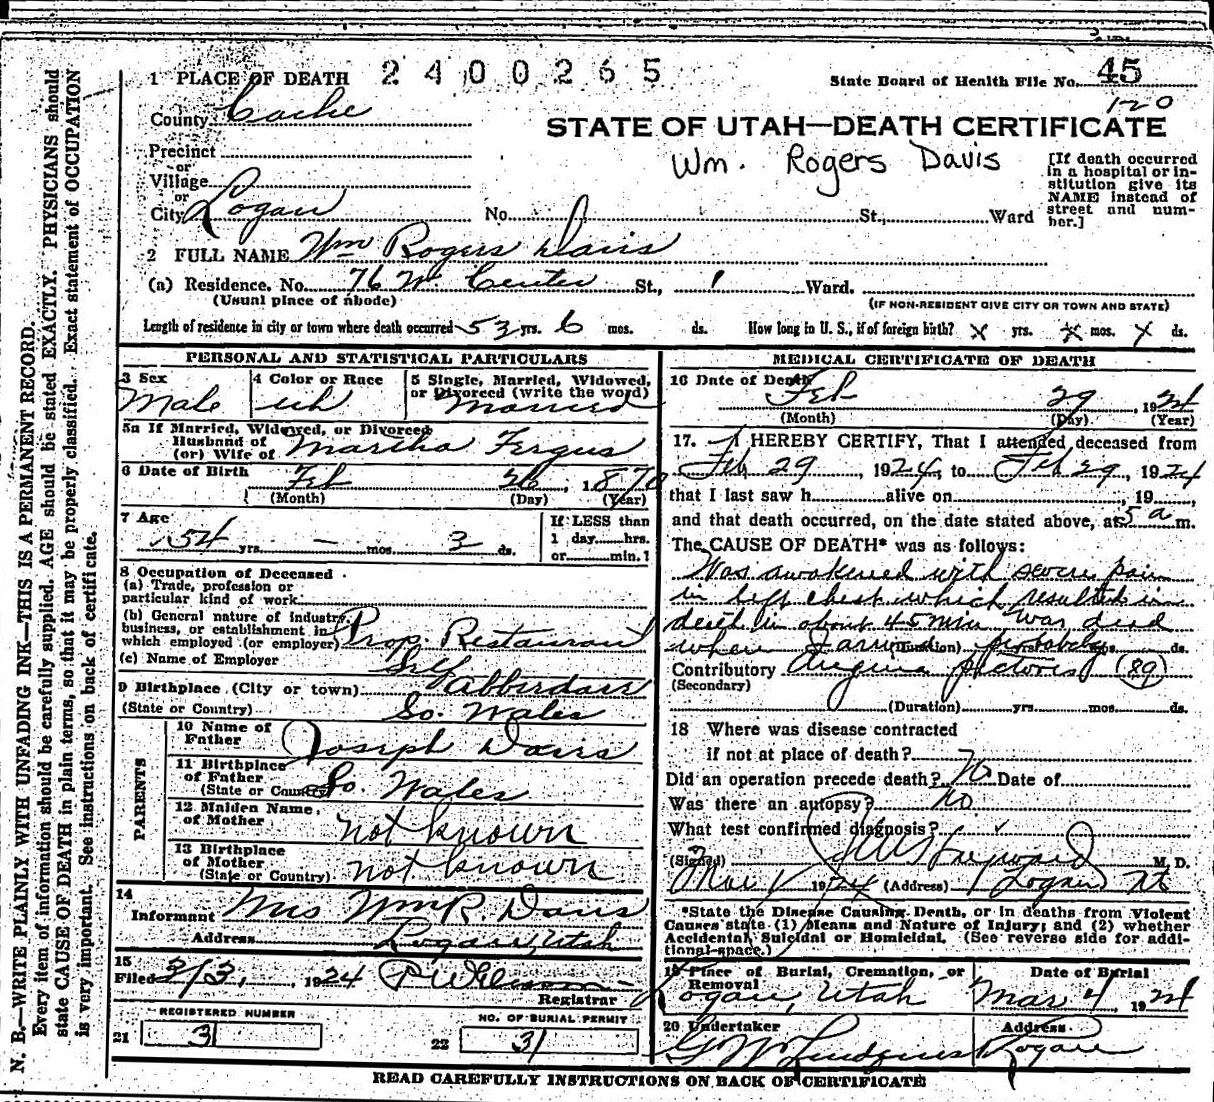 1 PLACE OF DEATH 2400265 State Board of Health File No. 45
120
County Cache
STATE OF UTAH—DEATH CERTIFICATE
Precinct
or
Village
or
City Logan No. St., Ward
Wm. Rogers Davis
[If death occurred
in a hospital or in-
stitution give its
NAME instead of
street and num-
ber.]
2 FULL NAME Wm Rogers Davis
(a) Residence. No. 76 W. Center St., 1 Ward.
(Usual place of abode) (IF NON-RESIDENT GIVE CITY OR TOWN AND STATE)
Length of residence in city or town where death occurred 53 yrs. 6 mos. ds. How long in U. S., if of foreign birth? x yrs. x mos. x ds.
PERSONAL AND STATISTICAL PARTICULARS
3 Sex 4 Color or Race 5 Single, Married, Widowed,
or Divorced (write the word)
Male wh Married
5a If Married, Widowed, or Divorced
Husband of
(or) Wife of Martha Fergus
6 Date of Birth Feb 26, 1870
(Month) (Day) (Year)
7 Age If LESS than
54 yrs. — mos. 3 ds. 1 day......hrs.
or......min.?
8 Occupation of Deceased
(a) Trade, profession or
particular kind of work
(b) General nature of industry,
business, or establishment in
which employed (or employer) Prop. Restaurant
(c) Name of Employer Self
9 Birthplace (City or town) Abberdare
(State or Country) So. Wales
PARENTS
10 Name of
Father Joseph Davis
11 Birthplace
of Father
(State or Country) So. Wales
12 Maiden Name
of Mother not known
13 Birthplace
of Mother
(State or Country) not known
14
Informant Mrs Wm R. Davis
Address Logan, Utah
15
Filed 3/3, 1924
Registrar
REGISTERED NUMBER NO. OF BURIAL PERMIT
21 31 22 31
MEDICAL CERTIFICATE OF DEATH
16 Date of Death
Feb 29, 1924
(Month) (Day) (Year)
17. I HEREBY CERTIFY, That I attended deceased from
Feb 29, 1924, to Feb 29, 1924
that I last saw h alive on , 19
and that death occurred, on the date stated above, at 5 a m.
The CAUSE OF DEATH* was as follows:
Was awakened with severe pain
in left chest which resulted in
death in about 45 min Was dead
when I arrived probably
(Duration) yrs. mos. ds.
Contributory Angina pictoris (89)
(Secondary)
(Duration) yrs. mos. ds.
18 Where was disease contracted
if not at place of death?
Did an operation precede death? No Date of
Was there an autopsy? no
What test confirmed diagnosis?
(Signed) Hayward M. D.
Mar 1 1924 (Address) Logan Ut
*State the Disease Causing Death, or in deaths from Violent
Causes state (1) Means and Nature of Injury; and (2) whether
Accidental, Suicidal or Homicidal. (See reverse side for addi-
tional space.)
19 Place of Burial, Cremation, or Date of Burial
Removal
Logan, Utah Mar 4 1924
20 Undertaker Address
Logan
READ CAREFULLY INSTRUCTIONS ON BACK OF CERTIFICATE
N. B.—WRITE PLAINLY WITH UNFADING INK—THIS IS A PERMANENT RECORD.
Every item of information should be carefully supplied. AGE should be stated EXACTLY. PHYSICIANS should
state CAUSE OF DEATH in plain terms, so that it may be properly classified. Exact statement of OCCUPATION
is very important. See instructions on back of certificate.